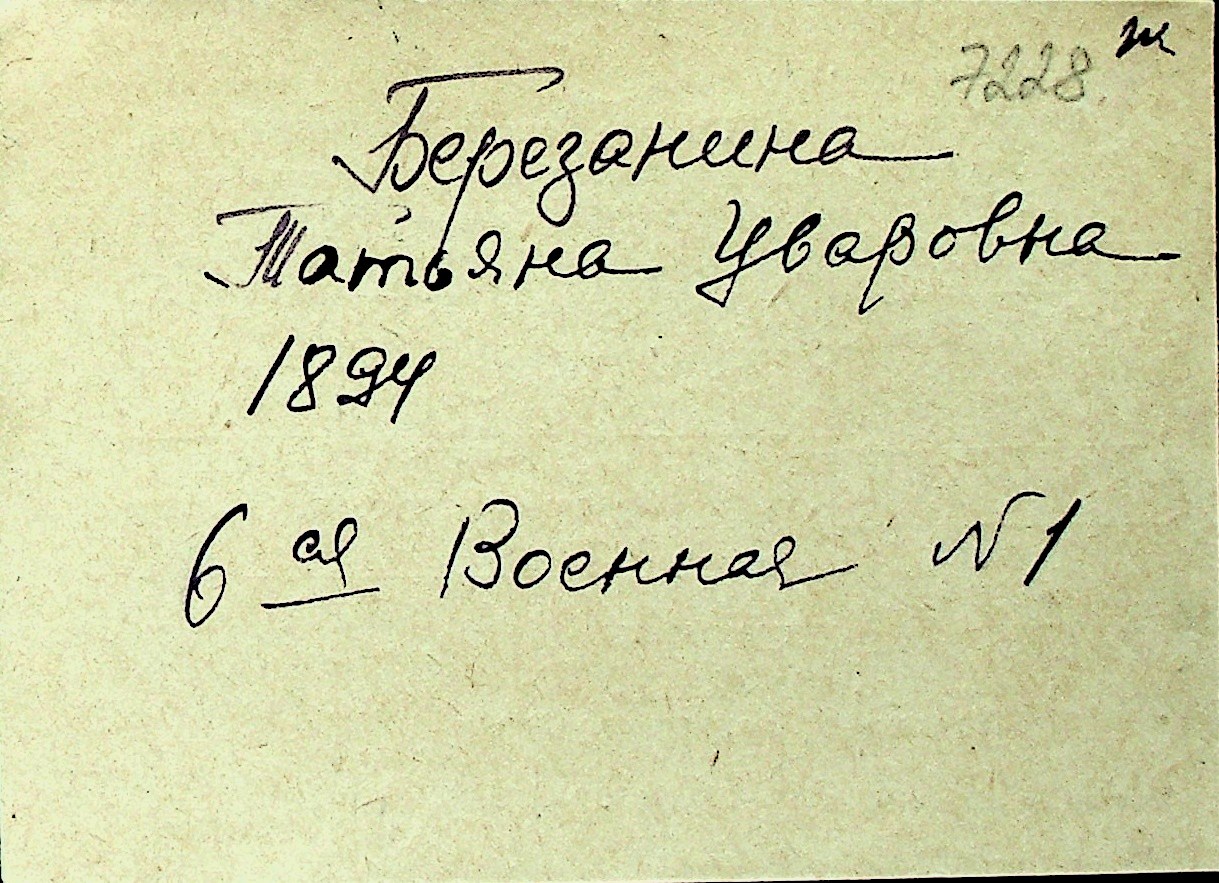 7228 ж
Березанина
Татьяна Уваровна
1894
6 ая Военная N1